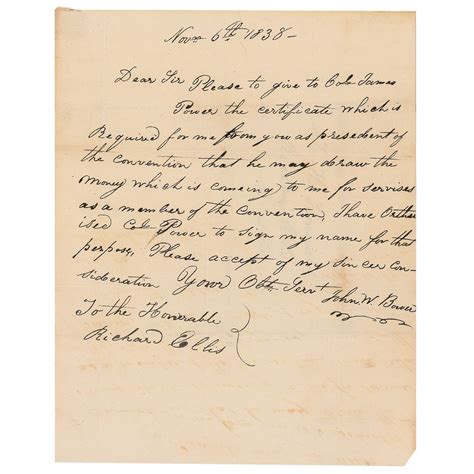 Novr 6th 1838-
Dear Sir Please to give to Colo James
Power the certificate which is
Required for me from you as presedient of
the convention that he may draw the
money which is comeing to me for servises
as a member of the Convention, I have Orther
ised Colo Power to sign my name for that
perpose, Please accept of my sincer con
sideration Your Obt Servt John W. Bower
To the Honorable
Richard Ellis